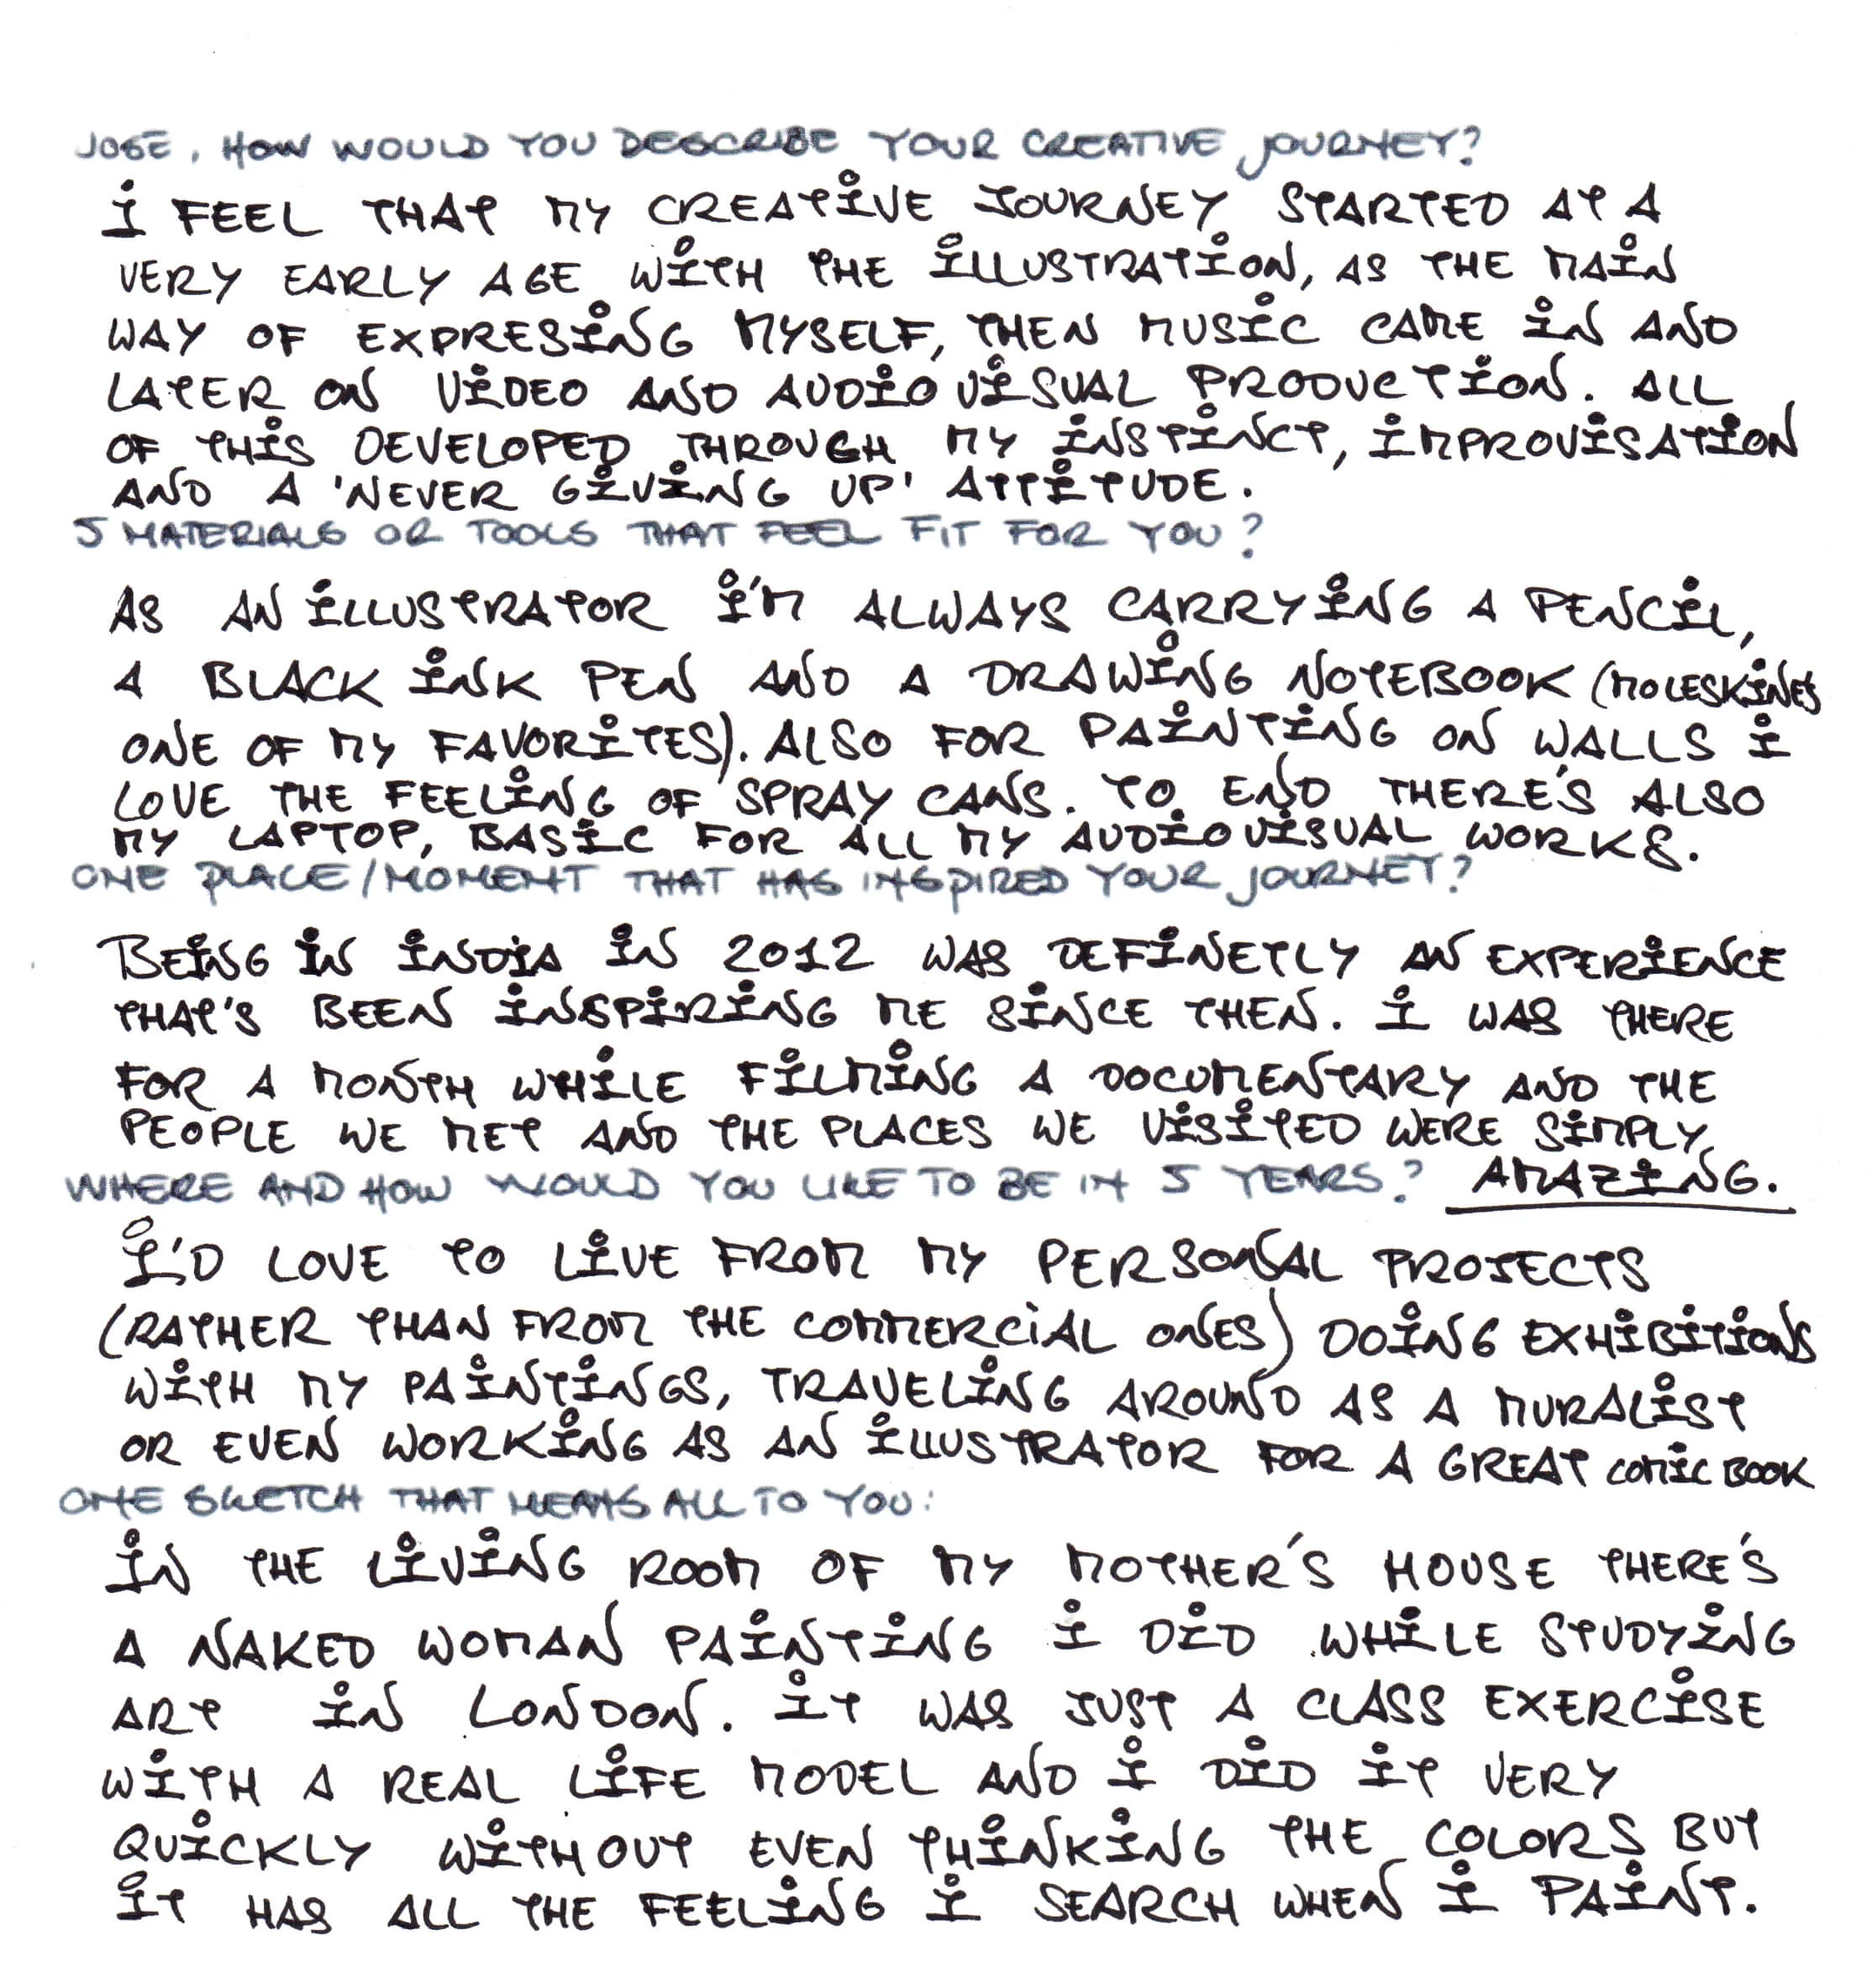 JOSE, HOW WOULD YOU DESCRIBE YOUR CREATIVE JOURNEY?
I FEEL THAT MY CREATIVE JOURNEY STARTED AT A
VERY EARLY AGE WITH THE ILLUSTRATION, AS THE MAIN
WAY OF EXPRESING MYSELF, THEN MUSIC CAME IN AND
LATER ON VIDEO AND AUDIOVISUAL PRODUCTION. ALL
OF THIS DEVELOPED THROUGH MY INSTINCT, IMPROVISATION
AND A 'NEVER GIVING UP' ATTITUDE.
5 MATERIALS OR TOOLS THAT FEEL FIT FOR YOU?
AS AN ILLUSTRATOR I'M ALWAYS CARRYING A PENCIL,
A BLACK INK PEN AND A DRAWING NOTEBOOK (MOLESKINE'S
ONE OF MY FAVORITES). ALSO FOR PAINTING ON WALLS I
LOVE THE FEELING OF SPRAY CANS. TO END THERE'S ALSO
MY LAPTOP, BASIC FOR ALL MY AUDIOVISUAL WORKS.
ONE PLACE/MOMENT THAT HAS INSPIRED YOUR JOURNEY?
BEING IN INDIA IN 2012 WAS DEFINETLY AN EXPERIENCE
THAT'S BEEN INSPIRING ME SINCE THEN. I WAS THERE
FOR A MONTH WHILE FILMING A DOCUMENTARY AND THE
PEOPLE WE MET AND THE PLACES WE VISITED WERE SIMPLY
AMAZING.
WHERE AND HOW WOULD YOU LIKE TO BE IN 5 YEARS?
I'D LOVE TO LIVE FROM MY PERSONAL PROJECTS
(RATHER THAN FROM THE COMMERCIAL ONES) DOING EXHIBITIONS
WITH MY PAINTINGS, TRAVELING AROUND AS A MURALIST
OR EVEN WORKING AS AN ILLUSTRATOR FOR A GREAT COMIC BOOK
ONE SKETCH THAT MEANS ALL TO YOU:
IN THE LIVING ROOM OF MY MOTHER'S HOUSE THERE'S
A NAKED WOMAN PAINTING I DID WHILE STUDYING
ART IN LONDON. IT WAS JUST A CLASS EXERCISE
WITH A REAL LIFE MODEL AND I DID IT VERY
QUICKLY WITHOUT EVEN THINKING THE COLORS BUT
IT HAS ALL THE FEELING I SEARCH WHEN I PAINT.